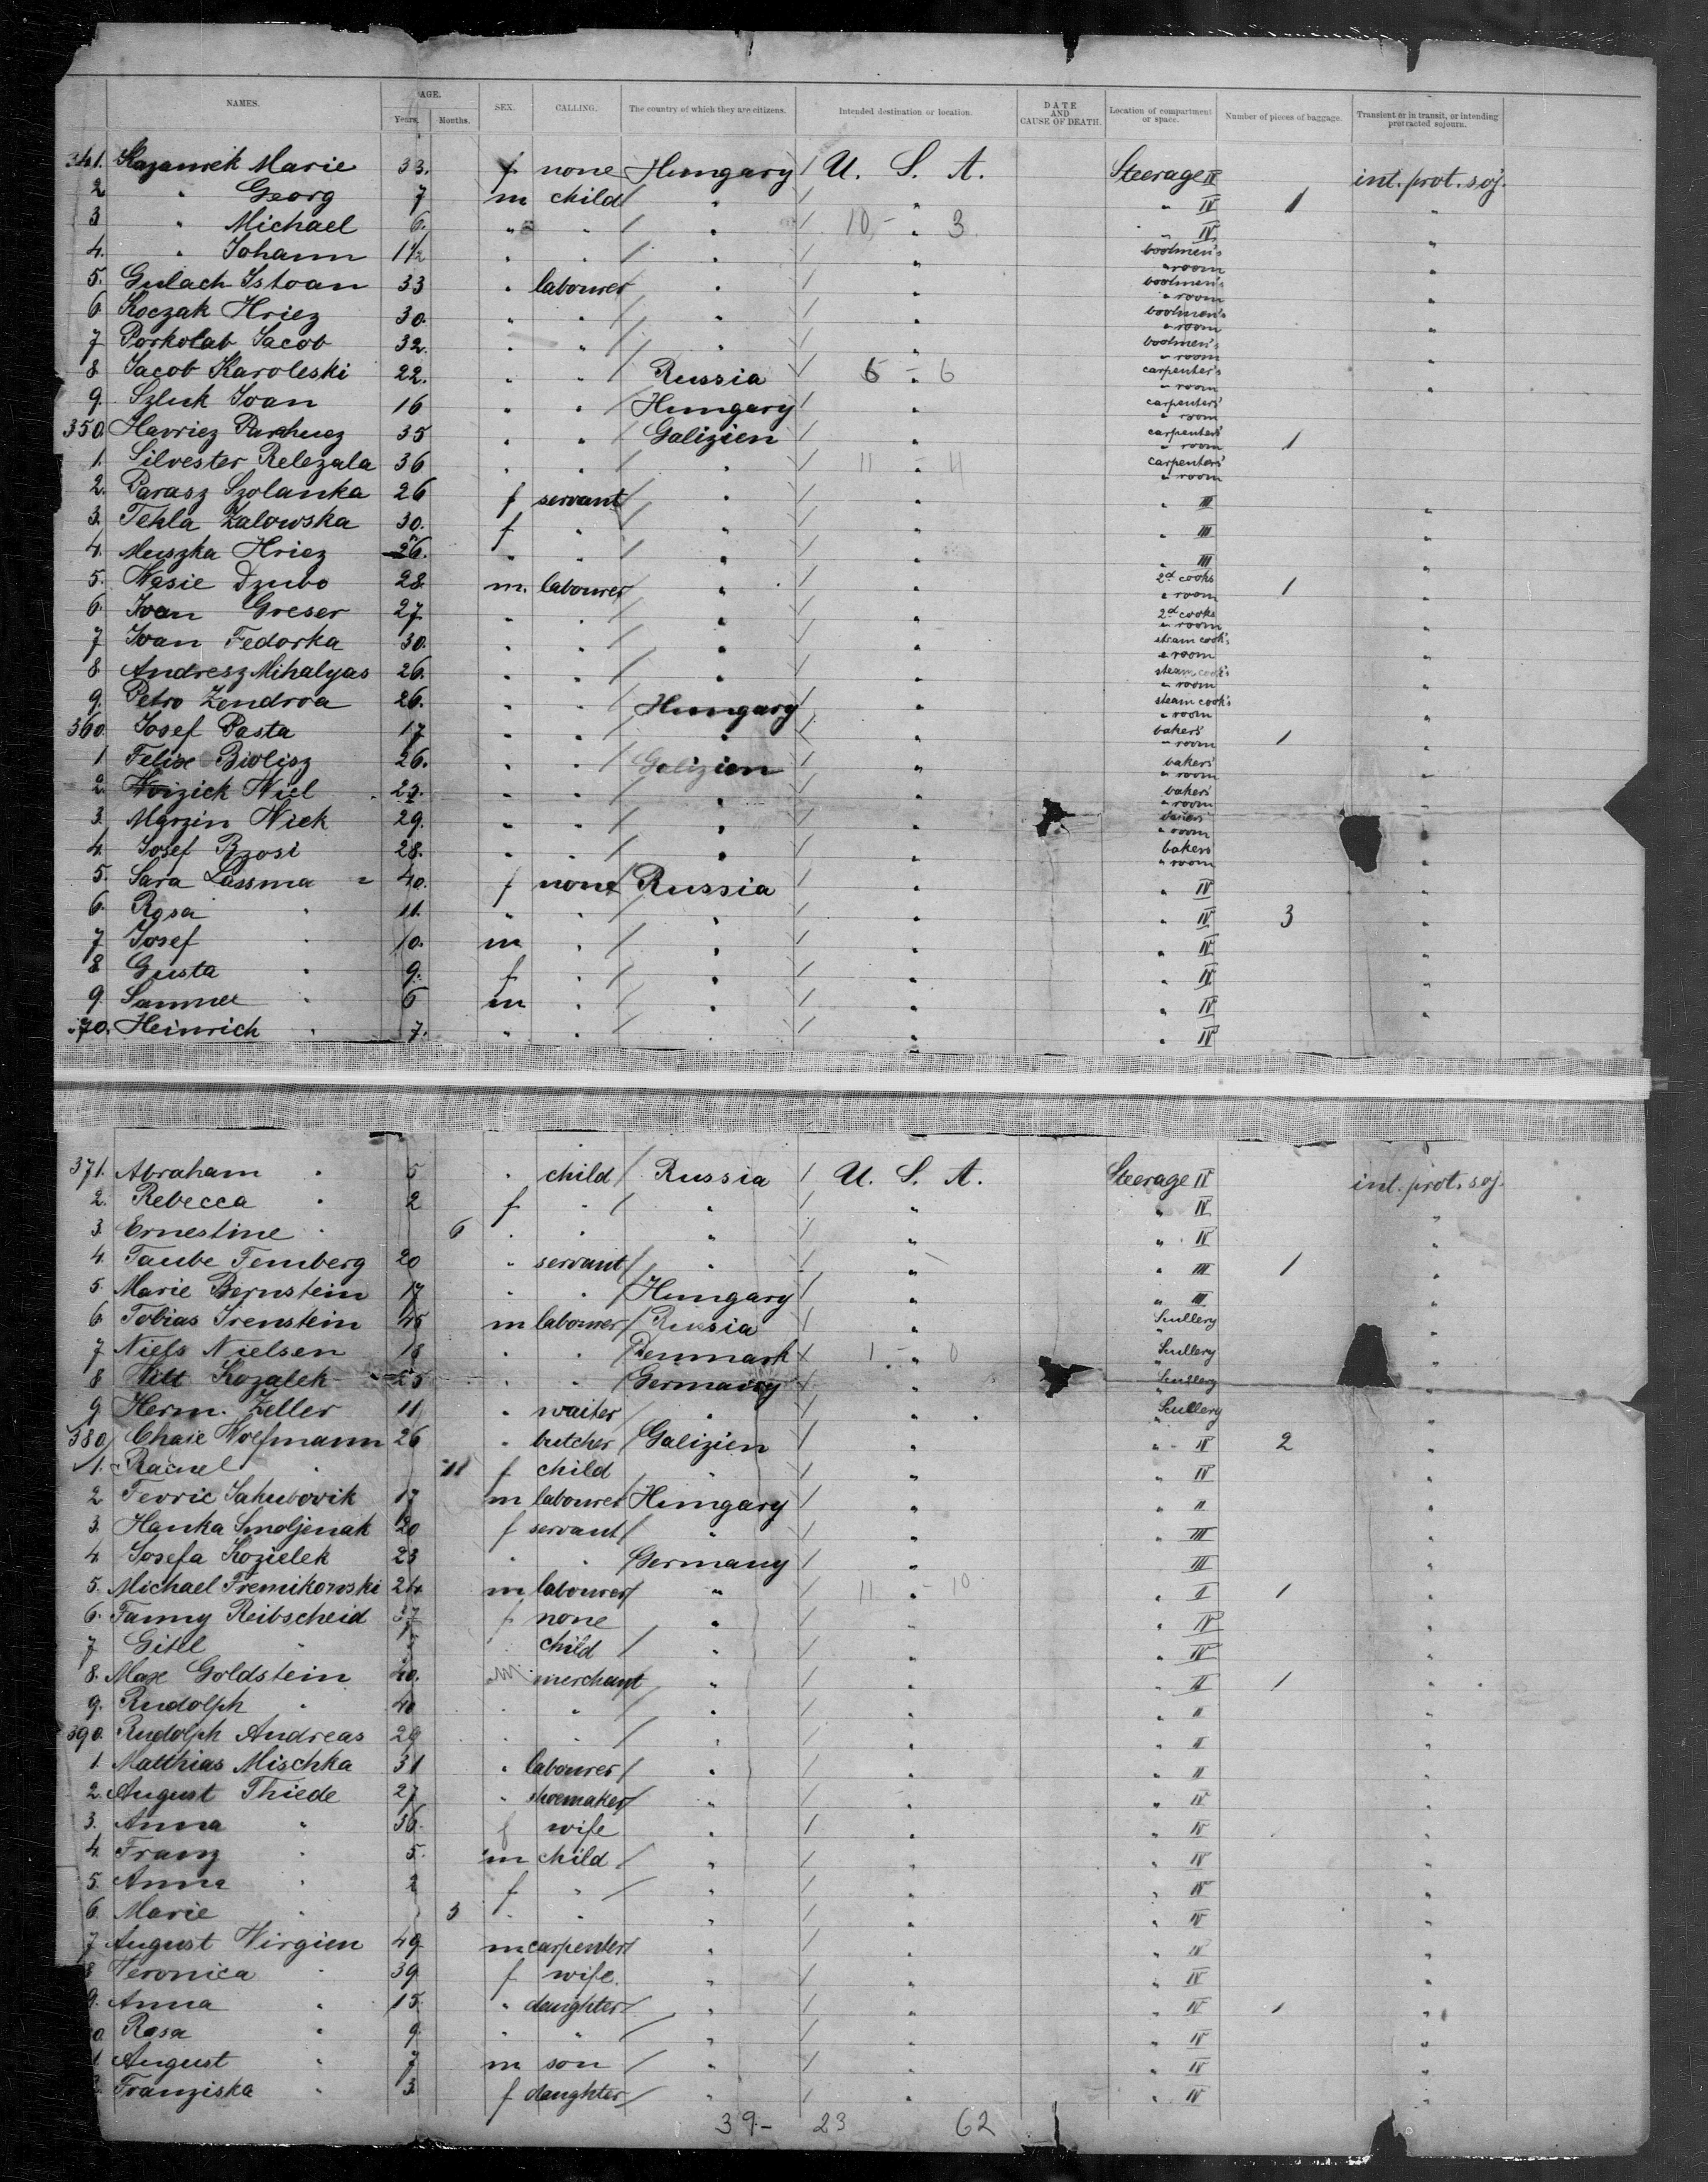 NAMES. AGE. Years. Months. SEX. CALLING. The country of which they are citizens. Intended destination or location. DATE AND CAUSE OF DEATH. Location of compartment or space. Number of pieces of baggage. Transient or in transit, or intending protracted sojourn.
341. Kazamrek Marie 33. f none Hungary U. S. A. Steerage IV int. prot. soj.
2 " Georg 7 m child " " " IV 1 "
3 " Michael 6. " " " 10 - " 3 " IV "
4. " Johann 1 1/2 " " " " boolmen's " room "
5. Gulach Istoan 33 " labourer " " boolmen's " room "
6 Koczak Hriez 30. " " " " boolmen's " room "
7 Porkolab Jacob 32. " " " " boolmen's " room "
8 Jacob Karoleski 22. " " Russia 6 - " 6 carpenter's " room "
9. Szluk Ivan 16 " " Hungary " carpenters' " room
350 Havriez Parhuez 35 " " Galizien " carpenters' " room 1
1. Silvester Relezala 36 " " " 11 - " 11 carpenters' " room
2. Parasz Szolanka 26 f servant " " " III "
3. Tekla Zalowska 30. f " " " " III "
4. Muszka Hriez 26. " " " " " III "
5. Wasie Dzubo 28. m. labourer " " 2d cooks " room 1 "
6. Ivan Greser 27 " " " " 2d cooks " room "
7 Ivan Fedorka 30. " " " " steam cook's " room "
8 Andresz Mihalyas 26. " " " " steam cook's " room "
9. Petro Zendroa 26. " " Hungary " steam cook's " room "
360. Josef Pasta 17 " " " " bakers' " room 1 "
1 Felix Biolisz 26. " " Galizien " bakers' " room "
2. Woizick Wiel 23. " " " " bakers' " room "
3. Marzin Wiek 29. " " " " bakers' " room "
4. Josef Rzosi 28. " " " " bakers " room "
5. Sara Lassma " 40. f none Russia " " IV "
6. Rosa " 11. " " " " " IV 3 "
7 Josef " 10. m " " " " IV "
8 Gusta " 9. f " " " " IV "
9. Sammel " 6 m " " " " IV "
70. Heinrich " 7. " " " " " IV
371. Abraham " 5 " child Russia U. S. A. Steerage IV int. prot. soj.
2. Rebecca " 2 f " " " " IV "
3. Ernestine " 6 " " " " " IV "
4. Taube Temberg 20 " servant " " " III 1 "
5. Marie Bernstein 17 " " Hungary " " III "
6 Tobias Irenstein 45 m labourer Russia " Scullery "
7 Niels Nielsen 18 " " Denmark 1 - " 0 Scullery "
8 Witt Kozalek 25 " " Germany " Scullery "
9 Herm. Zeller 11 " waiter " " Scullery "
380 Chaie Wolfmann 26 " butcher Galizien " " IV 2 "
1. Rachel " 11 f child " " " IV "
2 Tevric Jakubovik 17 m labourer Hungary " " II "
3. Hanka Smoljenak 20 f servant " " " III "
4 Josefa Kozielek 23 " " Germany " III "
5. Michael Tremikowski 24 m labourer " 11 - 10 " I 1 "
6. Fanny Reibscheid 37 f none " " " IV "
7 Gitel " 5 " child " " " IV "
8. Max Goldstein 40. m merchant " " " II 1 "
9. Rudolph " 40 " " " " " II "
390. Rudolph Andreas 29 " " " " " II "
1. Matthias Mischka 31 " labourer " " " II "
2. August Thiede 27 " shoemaker " " " IV "
3. Anna " 36. f wife " " " IV "
4. Franz " 5. m child " " " IV "
5. Anna " 2 f " " " " IV "
6. Marie " 3 " " " " " IV "
7 August Virgien 49 m carpenter " " " IV "
8 Veronica " 39 f wife. " " " IV "
9. Anna " 15. " daughter " " " IV 1 "
0. Rosa " 9. " " " " " IV "
1. August " 7 m son " " " IV "
Franziska " 3 f daughter " " " IV "
39 - 23 62